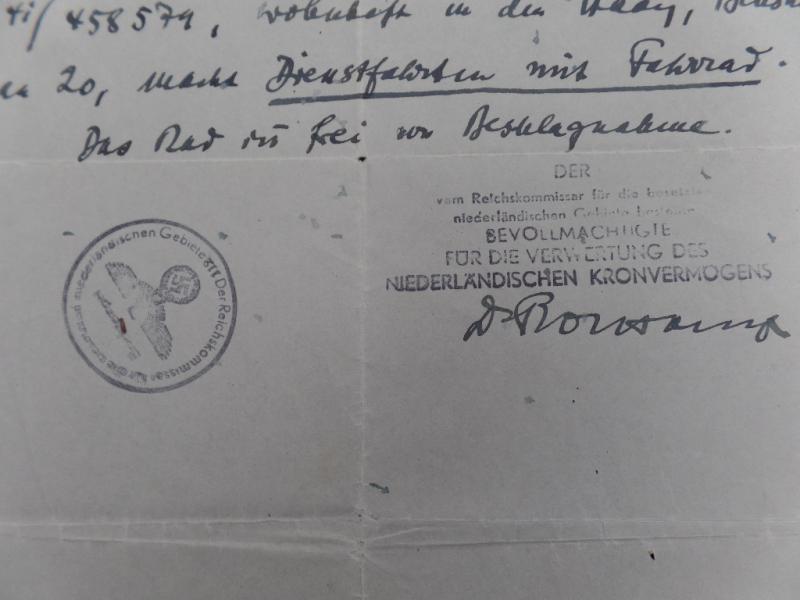 41/458579, wohnhaft in den Haag,
20, macht Dienstfahrten mit Fahrrad.
Das Rad ist frei von Beschlagnahme.
DER
vom Reichskommissar für die besetzten
niederländischen Gebiete
BEVOLLMÄCHTIGTE
FÜR DIE VERWERTUNG DES
NIEDERLÄNDISCHEN KRONVERMÖGENS
Der Reichskommissar für die besetzten niederländischen Gebiete